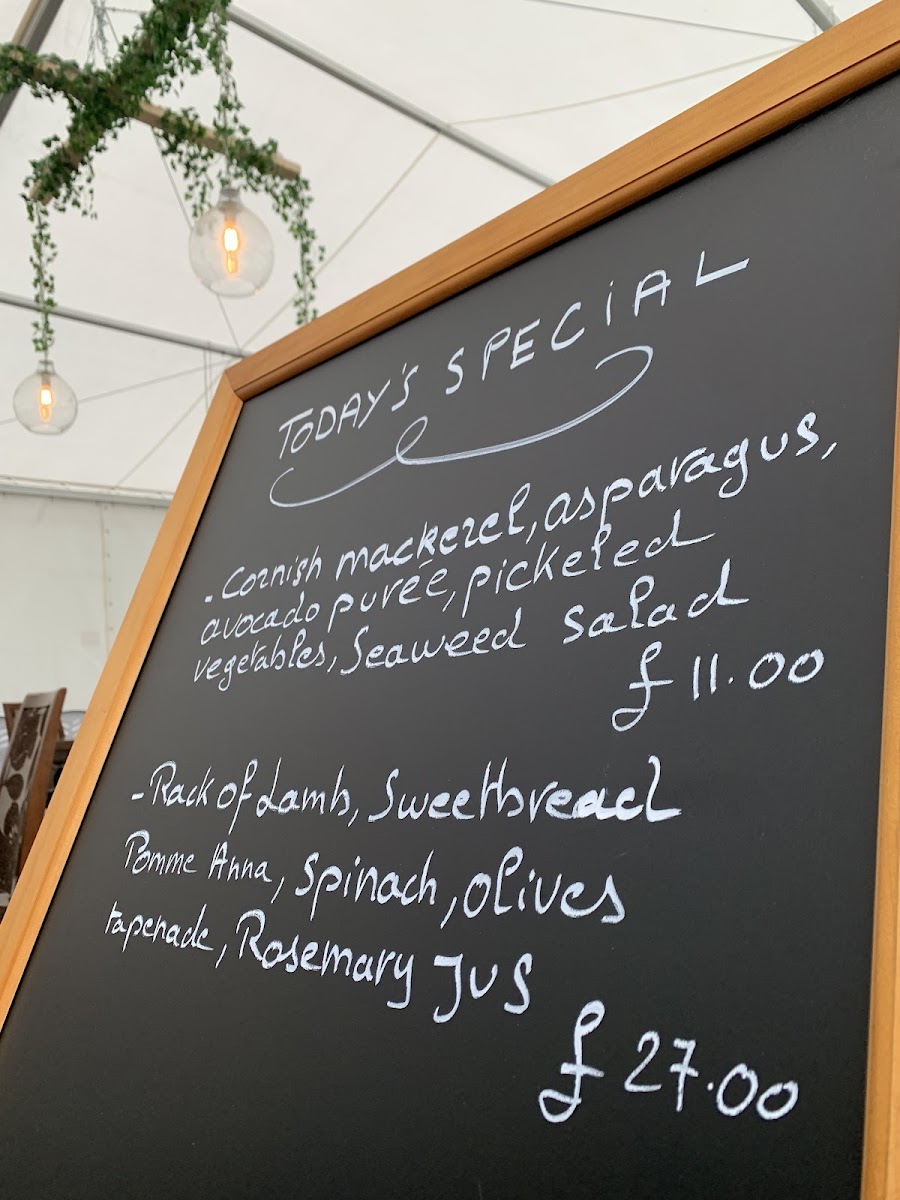 TODAY'S SPECIAL
- Cornish mackerel, asparagus,
avocado purée, pickeled
vegetables, Seaweed salad
£ 11.00
- Rack of Lamb, Sweetbread
Pomme Anna, Spinach, olives
tapenade, Rosemary JUS
£ 27.00